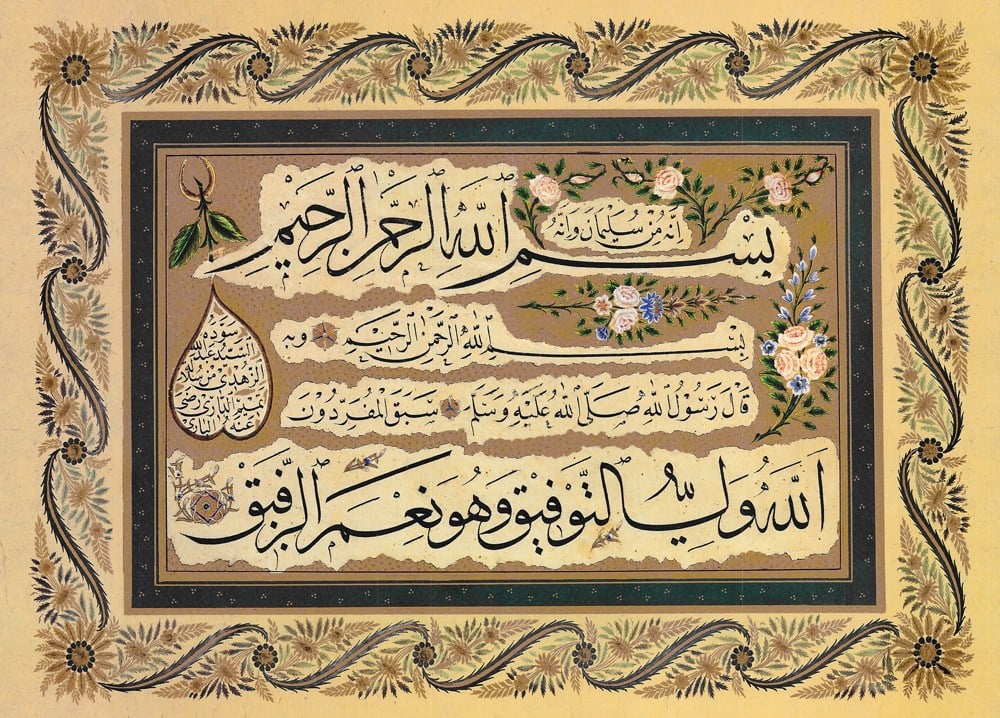 إنه من سليمان وإنه
بسم الله الرحمن الرحيم
بسم الله الرحمن الرحيم وبه
قال رسول الله صلى الله عليه وسلم سبق المفردون
الله ولي التوفيق وهو نعم الرفيق
سوده
السيد عبد الله
الزهدي من سلالة
تميم الداري رضي
عنه الباري